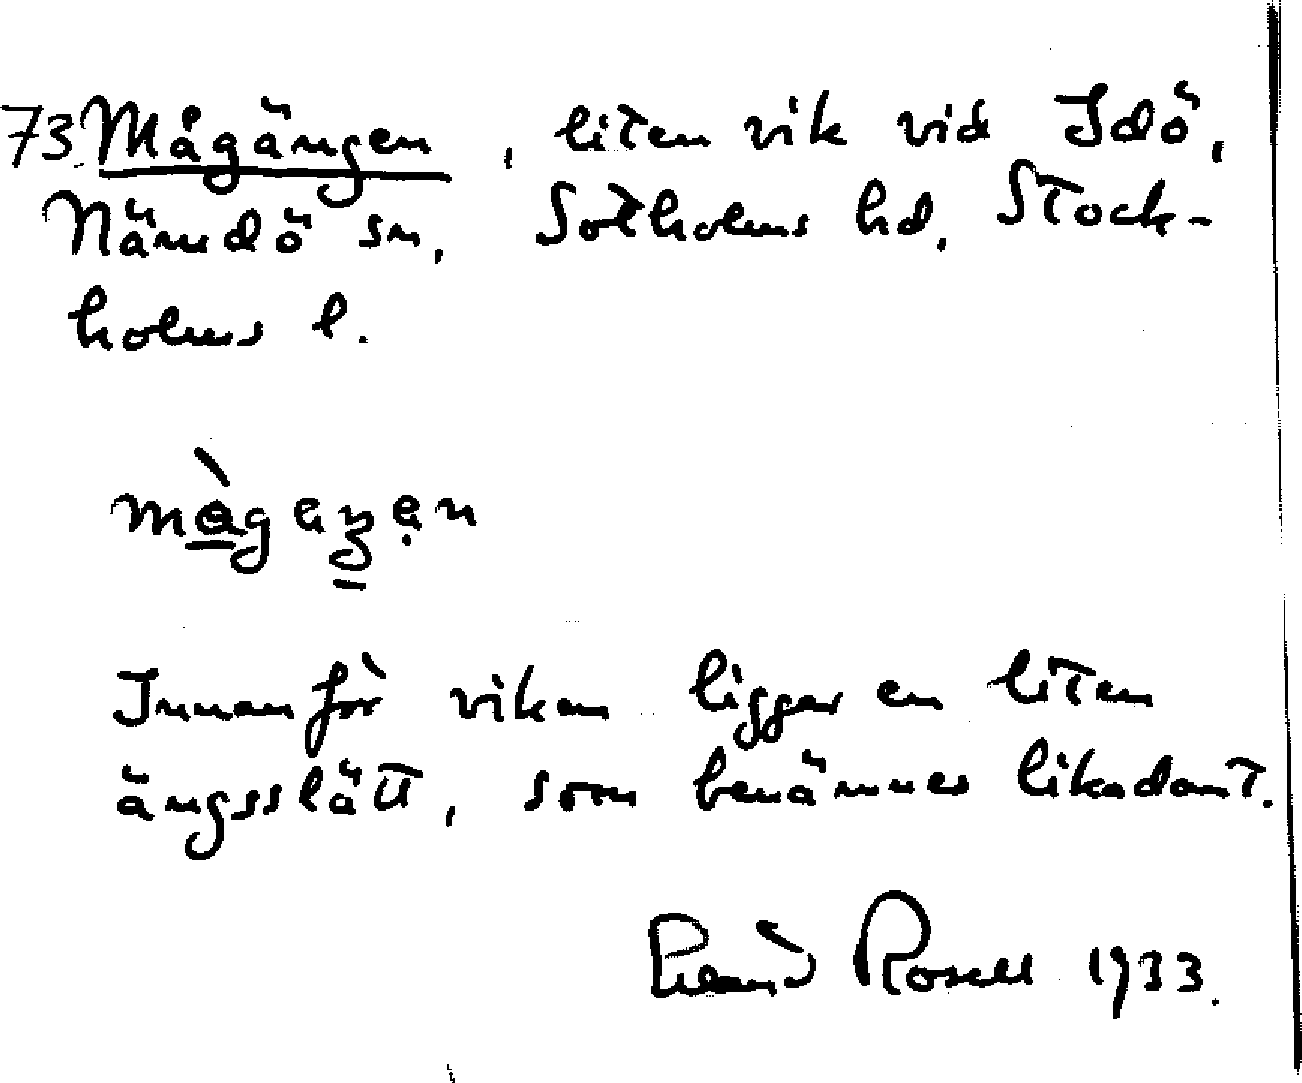 73. Mågängen, liten vik vid Idö,
Nämdö sn, Sotholms hd, Stock-
holms l.
Innanför viken ligger en liten
ängsslätt, som benämnes likadant.
Erland Rosell 1933.